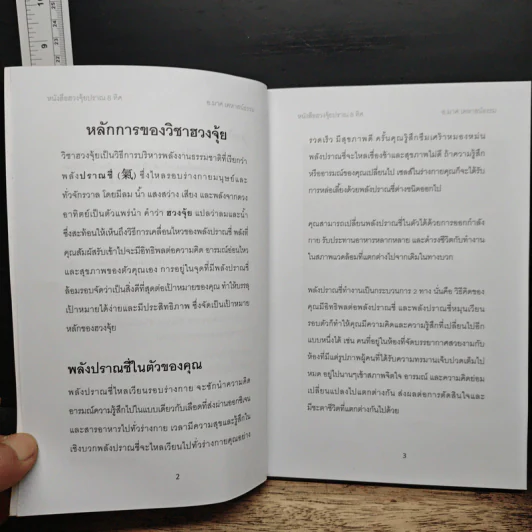 หนังสือฮวงจุ้ยปราณ 8 ทิศ
หลักการของวิชาฮวงจุ้ย
วิชาฮวงจุ้ยเป็นวิธีการบริหารพลังงานธรรมชาติที่เรียกว่า
พลังปราณชี่ (氣) ซึ่งไหลรอบร่างกายมนุษย์และ
ทั่วจักรวาล โดยมีลม น้ำ แสงสว่าง เสียง และพลังจากดวง
อาทิตย์เป็นตัวแพร่นำ คำว่า ฮวงจุ้ย แปลว่าลมและน้ำ
ซึ่งสะท้อนให้เห็นถึงวิธีการเคลื่อนไหวของพลังปราณชี่ พลังที่
คุณสัมผัสรับเข้าไปจะมีอิทธิพลต่อความคิด อารมณ์อ่อนไหว
และสุขภาพของตัวคุณเอง การอยู่ในจุดที่มีพลังปราณชี่
ล้อมรอบจัดว่าเป็นสิ่งที่ดีที่สุดต่อเป้าหมายของคุณ ทำให้บรรลุ
เป้าหมายได้ง่ายและมีประสิทธิภาพ ซึ่งจัดเป็นเป้าหมาย
หลักของฮวงจุ้ย
พลังปราณชี่ในตัวของคุณ
พลังปราณชี่ไหลเวียนรอบร่างกาย จะชักนำความคิด
อารมณ์ความรู้สึกไปในแบบเดียวกับเลือดที่ส่งผ่านออกซิเจน
และสารอาหารไปทั่วร่างกาย เวลามีความสุขและรู้สึกใน
เชิงบวกพลังปราณชี่จะไหลเวียนไปทั่วร่างกายคุณอย่าง
2
หนังสือฮวงจุ้ยปราณ 8 ทิศ
รวดเร็ว มีสุขภาพดี ครั้นคุณรู้สึกซึมเศร้าหมองหม่น
พลังปราณชี่จะไหลเชื่องช้าและสุขภาพไม่ดี ถ้าความรู้สึก
หรืออารมณ์ของคุณเปลี่ยนไป เซลล์ในร่างกายคุณก็จะได้รับ
การหล่อเลี้ยงด้วยพลังปราณชี่ต่างชนิดออกไป
คุณสามารถเปลี่ยนพลังปราณชี่ในตัวได้ด้วยการออกกำลัง
กาย รับประทานอาหารหลากหลาย และดำรงชีวิตกับทำงาน
ในสภาพแวดล้อมที่แตกต่างไปจากเดิมในทางบวก
พลังปราณชี่ทำงานเป็นกระบวนการ 2 ทาง นั่นคือ วิธีคิดของ
คุณมีอิทธิพลต่อพลังปราณชี่ และพลังปราณชี่หมุนเวียน
รอบตัวก็ทำให้คุณมีความคิดและความรู้สึกที่เปลี่ยนไปอีก
แบบหนึ่งได้ เช่น คนที่อยู่ในห้องที่จัดบรรยากาศสวยงามกับ
ห้องที่มีแต่รูปภาพผู้คนที่ได้รับความทรมานเจ็บปวดเต็มไป
หมด อยู่ไปนานๆเข้าสภาพจิตใจ อารมณ์ และความคิดย่อม
เปลี่ยนแปลงไปแตกต่างกัน ส่งผลต่อการตัดสินใจและ
มีชะตาชีวิตที่แตกต่างกันไปด้วย
3